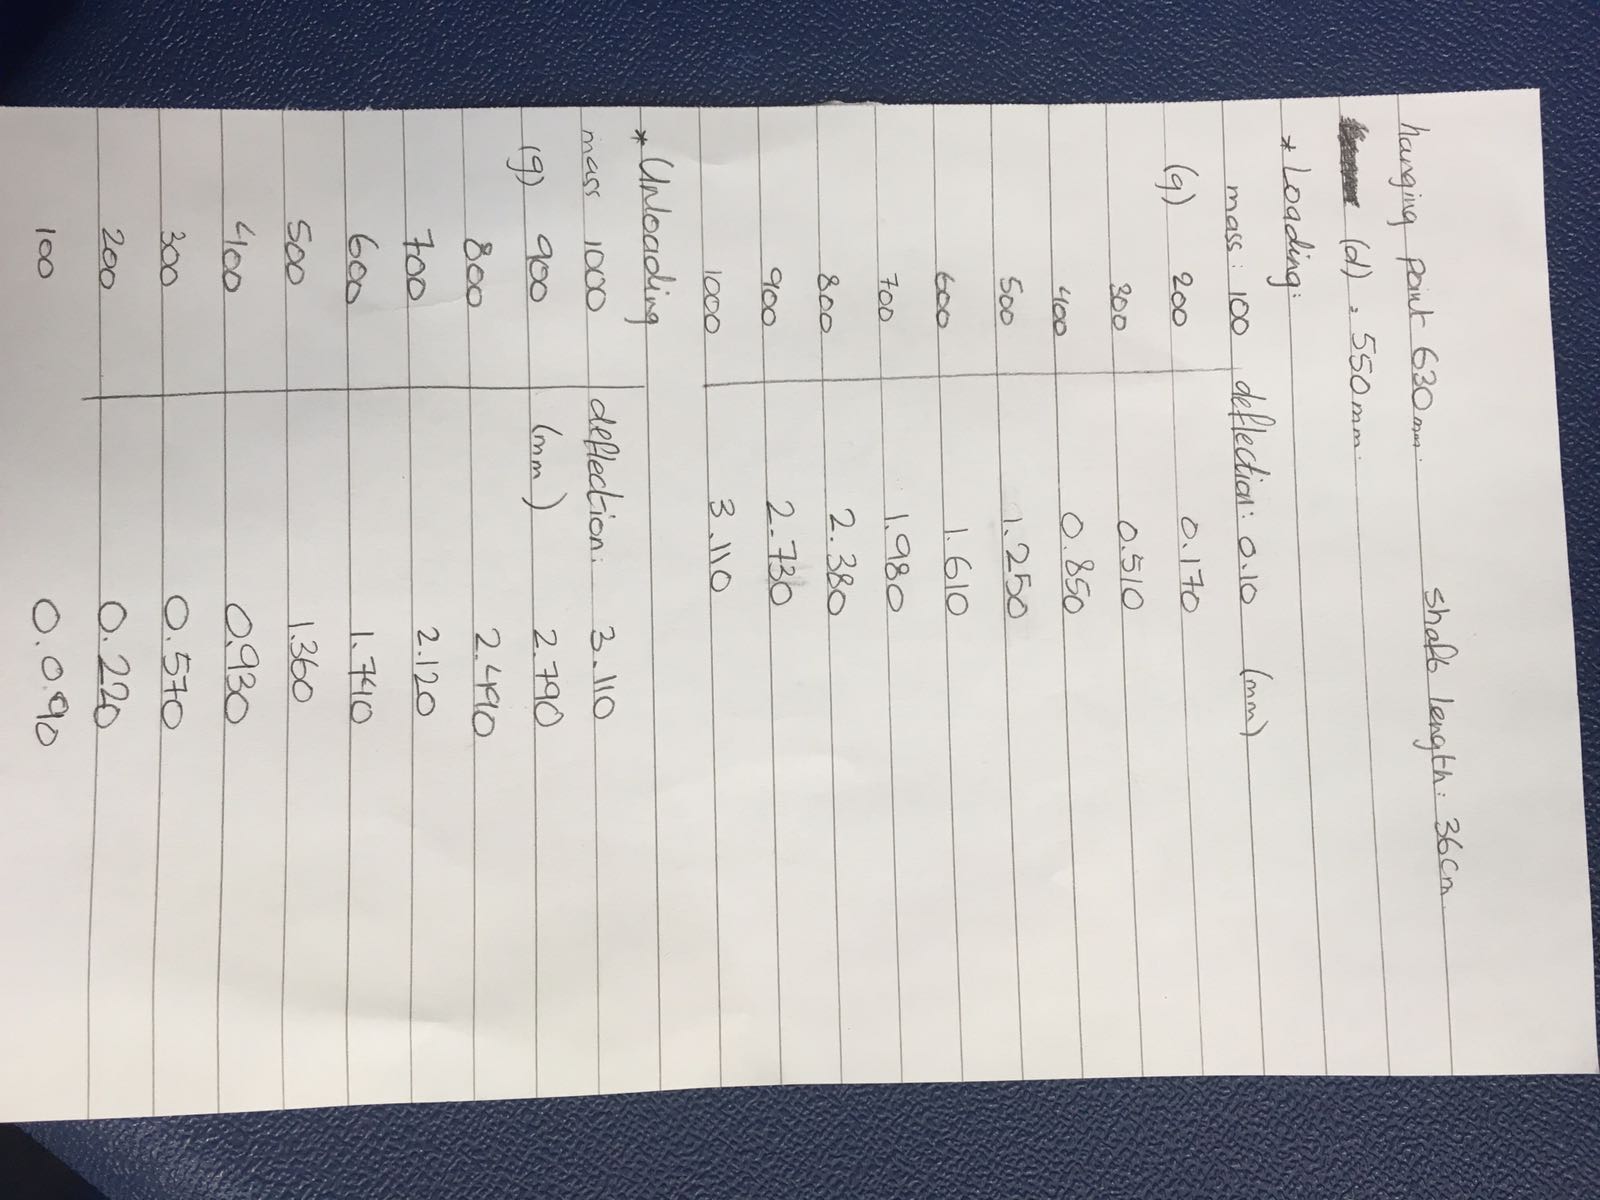 hanging point 630mm. shaft length: 36cm.
(d) = 550mm.
* Loading:
mass: 100 deflection: 0.10 (mm)
(g) 200 0.170
300 0.510
400 0.850
500 1.250
600 1.610
700 1.980
800 2.380
900 2.730
1000 3.110
* Unloading
mass 1000 deflection: 3.110
(g) 900 (mm) 2.790
800 2.490
700 2.120
600 1.740
500 1.360
400 0.930
300 0.570
200 0.220
100 0.0.90